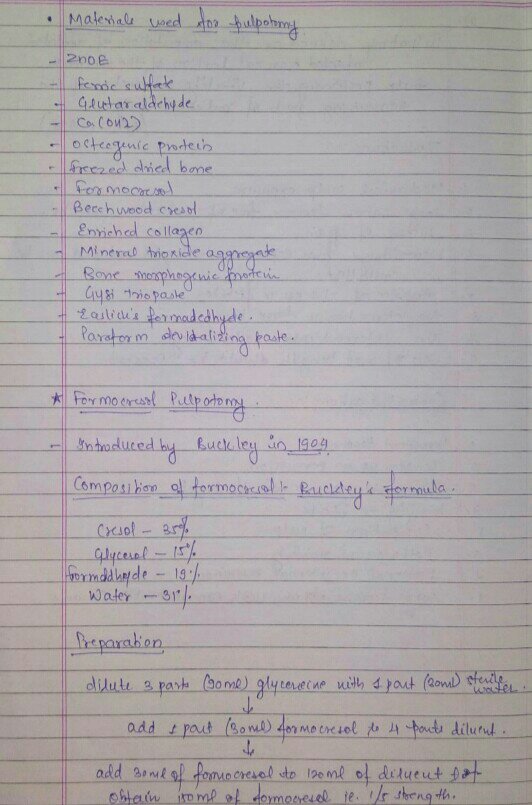 • Materials used for pulpotomy
- ZnOE
- Ferric sulfate
- Glutaraldehyde
- Ca(OH2)
- Octeogenic protein
- freezed dried bone
- Formocresol
- Beechwood cresol
- Enriched collagen
- Mineral trioxide aggregate
- Bone morphogenic protein
- Gysi triopaste
- Easlick's formadedhyde.
- Paraform devitalizing paste.
* Formocresol Pulpotomy.
- Introduced by Buckley in 1904
Composition of formocresol :- Buckley's formula.
Cresol - 35%
Glycerol - 15%
formddhyde - 19%
Water - 31%
Preparation
dilute 3 parts (90ml) glycereine with 1 part (30ml) sterile water.
↓
add 1 part (30ml) formocresol to 4 parts diluent.
↓
add 30ml of formocresol to 120ml of diluent to
obtain 150ml of formocresol ie. 1/5 strength.